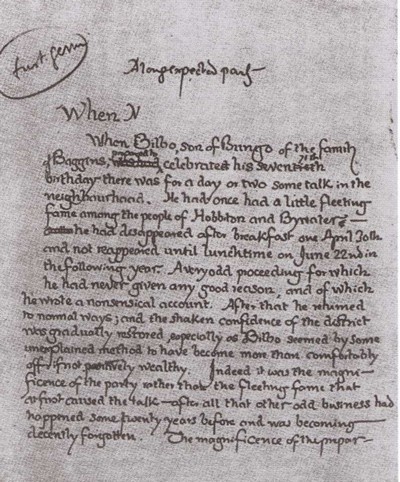 first germ
A long expected party
When N
When Bilbo, son of Bungo of the family
of Baggins, prepared to celebrated his seventieth 71st
birthday there was for a day or two some talk in the
neighbourhood. He had once had a little fleeting
fame among the people of Hobbiton and Bywater –
he had disappeared after breakfast one April 30th
and not reappeared until lunchtime on June 22nd in
the following year. A very odd proceeding for which
he had never given any good reason, and of which
he wrote a nonsensical account. After that he returned
to normal ways; and the shaken confidence of the district
was gradually restored, especially as Bilbo seemed by some
unexplained method to have become more than comfortably
off, if not positively wealthy. Indeed it was the magni-
ficence of the party rather than the fleeting fame that
at first caused the talk – after all that other odd business had
happened some twenty years before and was becoming
decently forgotten. The magnificence of the